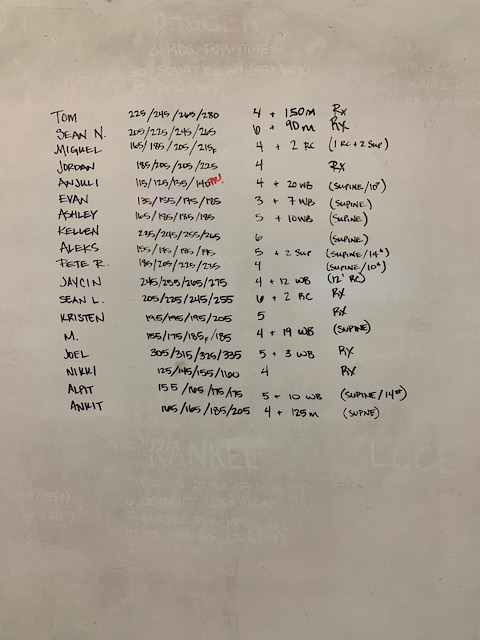 30 SQUAT CLEAN
TOM 225/245/265/280 4 + 150m Rx
SEAN N. 205/225/245/265 6 + 90m Rx
MIGUEL 165/185/205/215F 4 + 2 RC (1 RC + 2 SUP)
JORDAN 185/205/205/225 4 RX
ANJULI 115/125/135/140 PR! 4 + 20 WB (SUPINE/10#)
EVAN 135/155/175/185 3 + 7 WB (SUPINE)
ASHLEY 165/185/185/185 5 + 10WB (SUPINE)
KELLEN 235/245/255/265 6 (SUPINE)
ALEKS 155/175/175/175 5 + 2 SUP (SUPINE/14#)
PETE R. 185/205/225/235 4 (SUPINE/10#)
JAYCIN 245/255/265/275 4 + 12 WB (12' RC)
SEAN L. 205/225/245/255 6 + 2 RC RX
KRISTEN 195/195/195/205 5 RX
M. 155/175/185F/185 4 + 19 WB (SUPINE)
JOEL 305/315/325/335 5 + 3 WB RX
NIKKI 125/145/155/160 4 RX
ALPIT 155/165/175/175 5 + 10 WB (SUPINE/14#)
ANKIT 165/165/185/205 4 + 125m (SUPNE)
"RANKEL LUCE